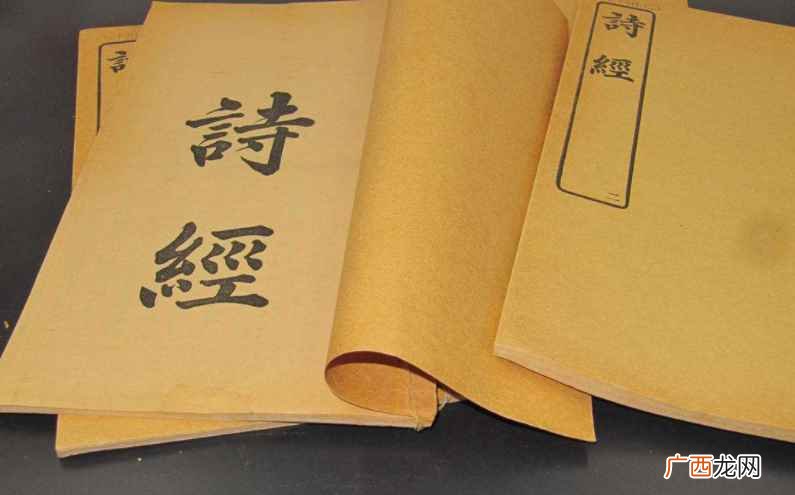 詩
經
詩經
二
言
广西龙网